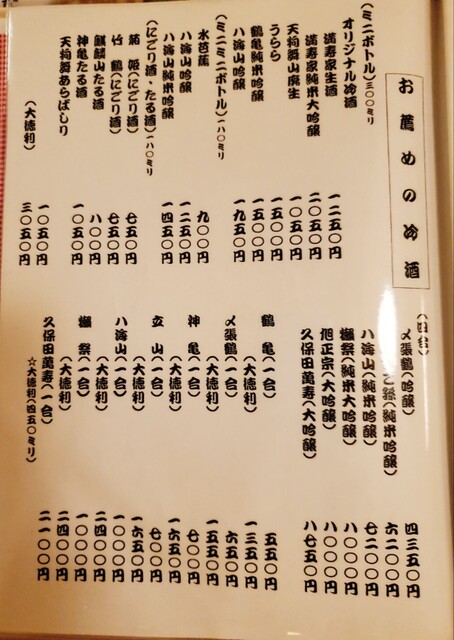 お薦めの冷酒
(ミニボトル)三〇〇ミリ
オリジナル冷酒
満寿家生酒 一二五〇円
満寿家純米大吟醸 二〇五〇円
天狗舞山廃生 一〇五〇円
うらら 一五〇〇円
鶴亀純米吟醸 一五〇〇円
八海山吟醸 一九五〇円
(ミニミニボトル)一八〇ミリ
水芭蕉 九〇〇円
八海山吟醸 一二五〇円
八海山純米吟醸 一四五〇円
(にごり酒・たる酒)一八〇ミリ
菊姫(にごり酒) 七五〇円
竹鶴(にごり酒) 七五〇円
麒麟山たる酒 八〇〇円
神亀たる酒 一〇五〇円
天狗舞あらばしり 一〇五〇円
(大徳利) 三〇五〇円
(四合)
〆張鶴(吟醸) 四三五〇円
(純米吟醸) 六二〇〇円
八海山(純米大吟醸) 七二〇〇円
獺祭(純米大吟醸) 八〇〇〇円
旭正宗(大吟醸) 八〇〇〇円
久保田萬寿(大吟醸) 八七五〇円
鶴亀(一合) 五五〇円
(大徳利) 一三五〇円
〆張鶴(一合) 六五〇円
(大徳利) 一五五〇円
神亀(一合) 七〇〇円
(大徳利) 一六五〇円
立山(一合) 七〇〇円
(大徳利) 一六五〇円
八海山(一合) 一〇〇〇円
(大徳利) 二四〇〇円
獺祭(一合) 一〇〇〇円
(大徳利) 二四〇〇円
久保田萬寿(一合) 二一〇〇円
☆大徳利(四五〇ミリ)